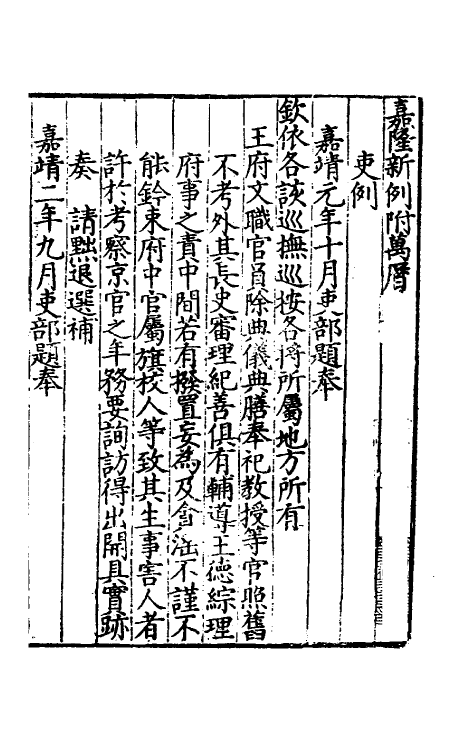 嘉隆新例附萬曆
吏例
嘉靖元年十月吏部題奉
欽依各該巡撫巡按各將所屬地方所有
王府文職官員除典儀典膳奉祀教授等官照舊
不考外其長史審理紀善俱有輔導王德綜理
府事之責中間若有撥置妄為及貪淫不謹不
能鈐束府中官屬旗校人等致其生事害人者
許於考察京官之年務要詢訪得出開具實跡
奏 請黜退選補
嘉靖二年九月吏部題奉